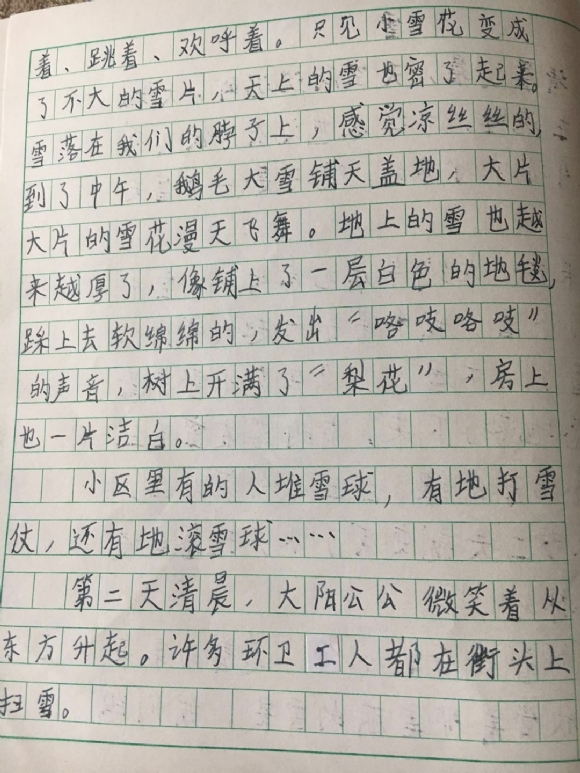 着、跳着、欢呼着。只见小雪花变成
了不大的雪片，天上的雪也密了起来。
雪落在我们的脖子上，感觉凉丝丝的，
到了中午，鹅毛大雪铺天盖地，大片
大片的雪花漫天飞舞。地上的雪也越
来越厚了，像铺上了一层白色的地毯，
踩上去软绵绵的，发出“咯吱咯吱”
的声音，树上开满了“梨花”，房上
也一片洁白。
小区里有的人堆雪球，有地打雪
仗，还有地滚雪球……
第二天清晨，大阳公公微笑着从
东方升起。许多环卫工人都在街头上
扫雪。